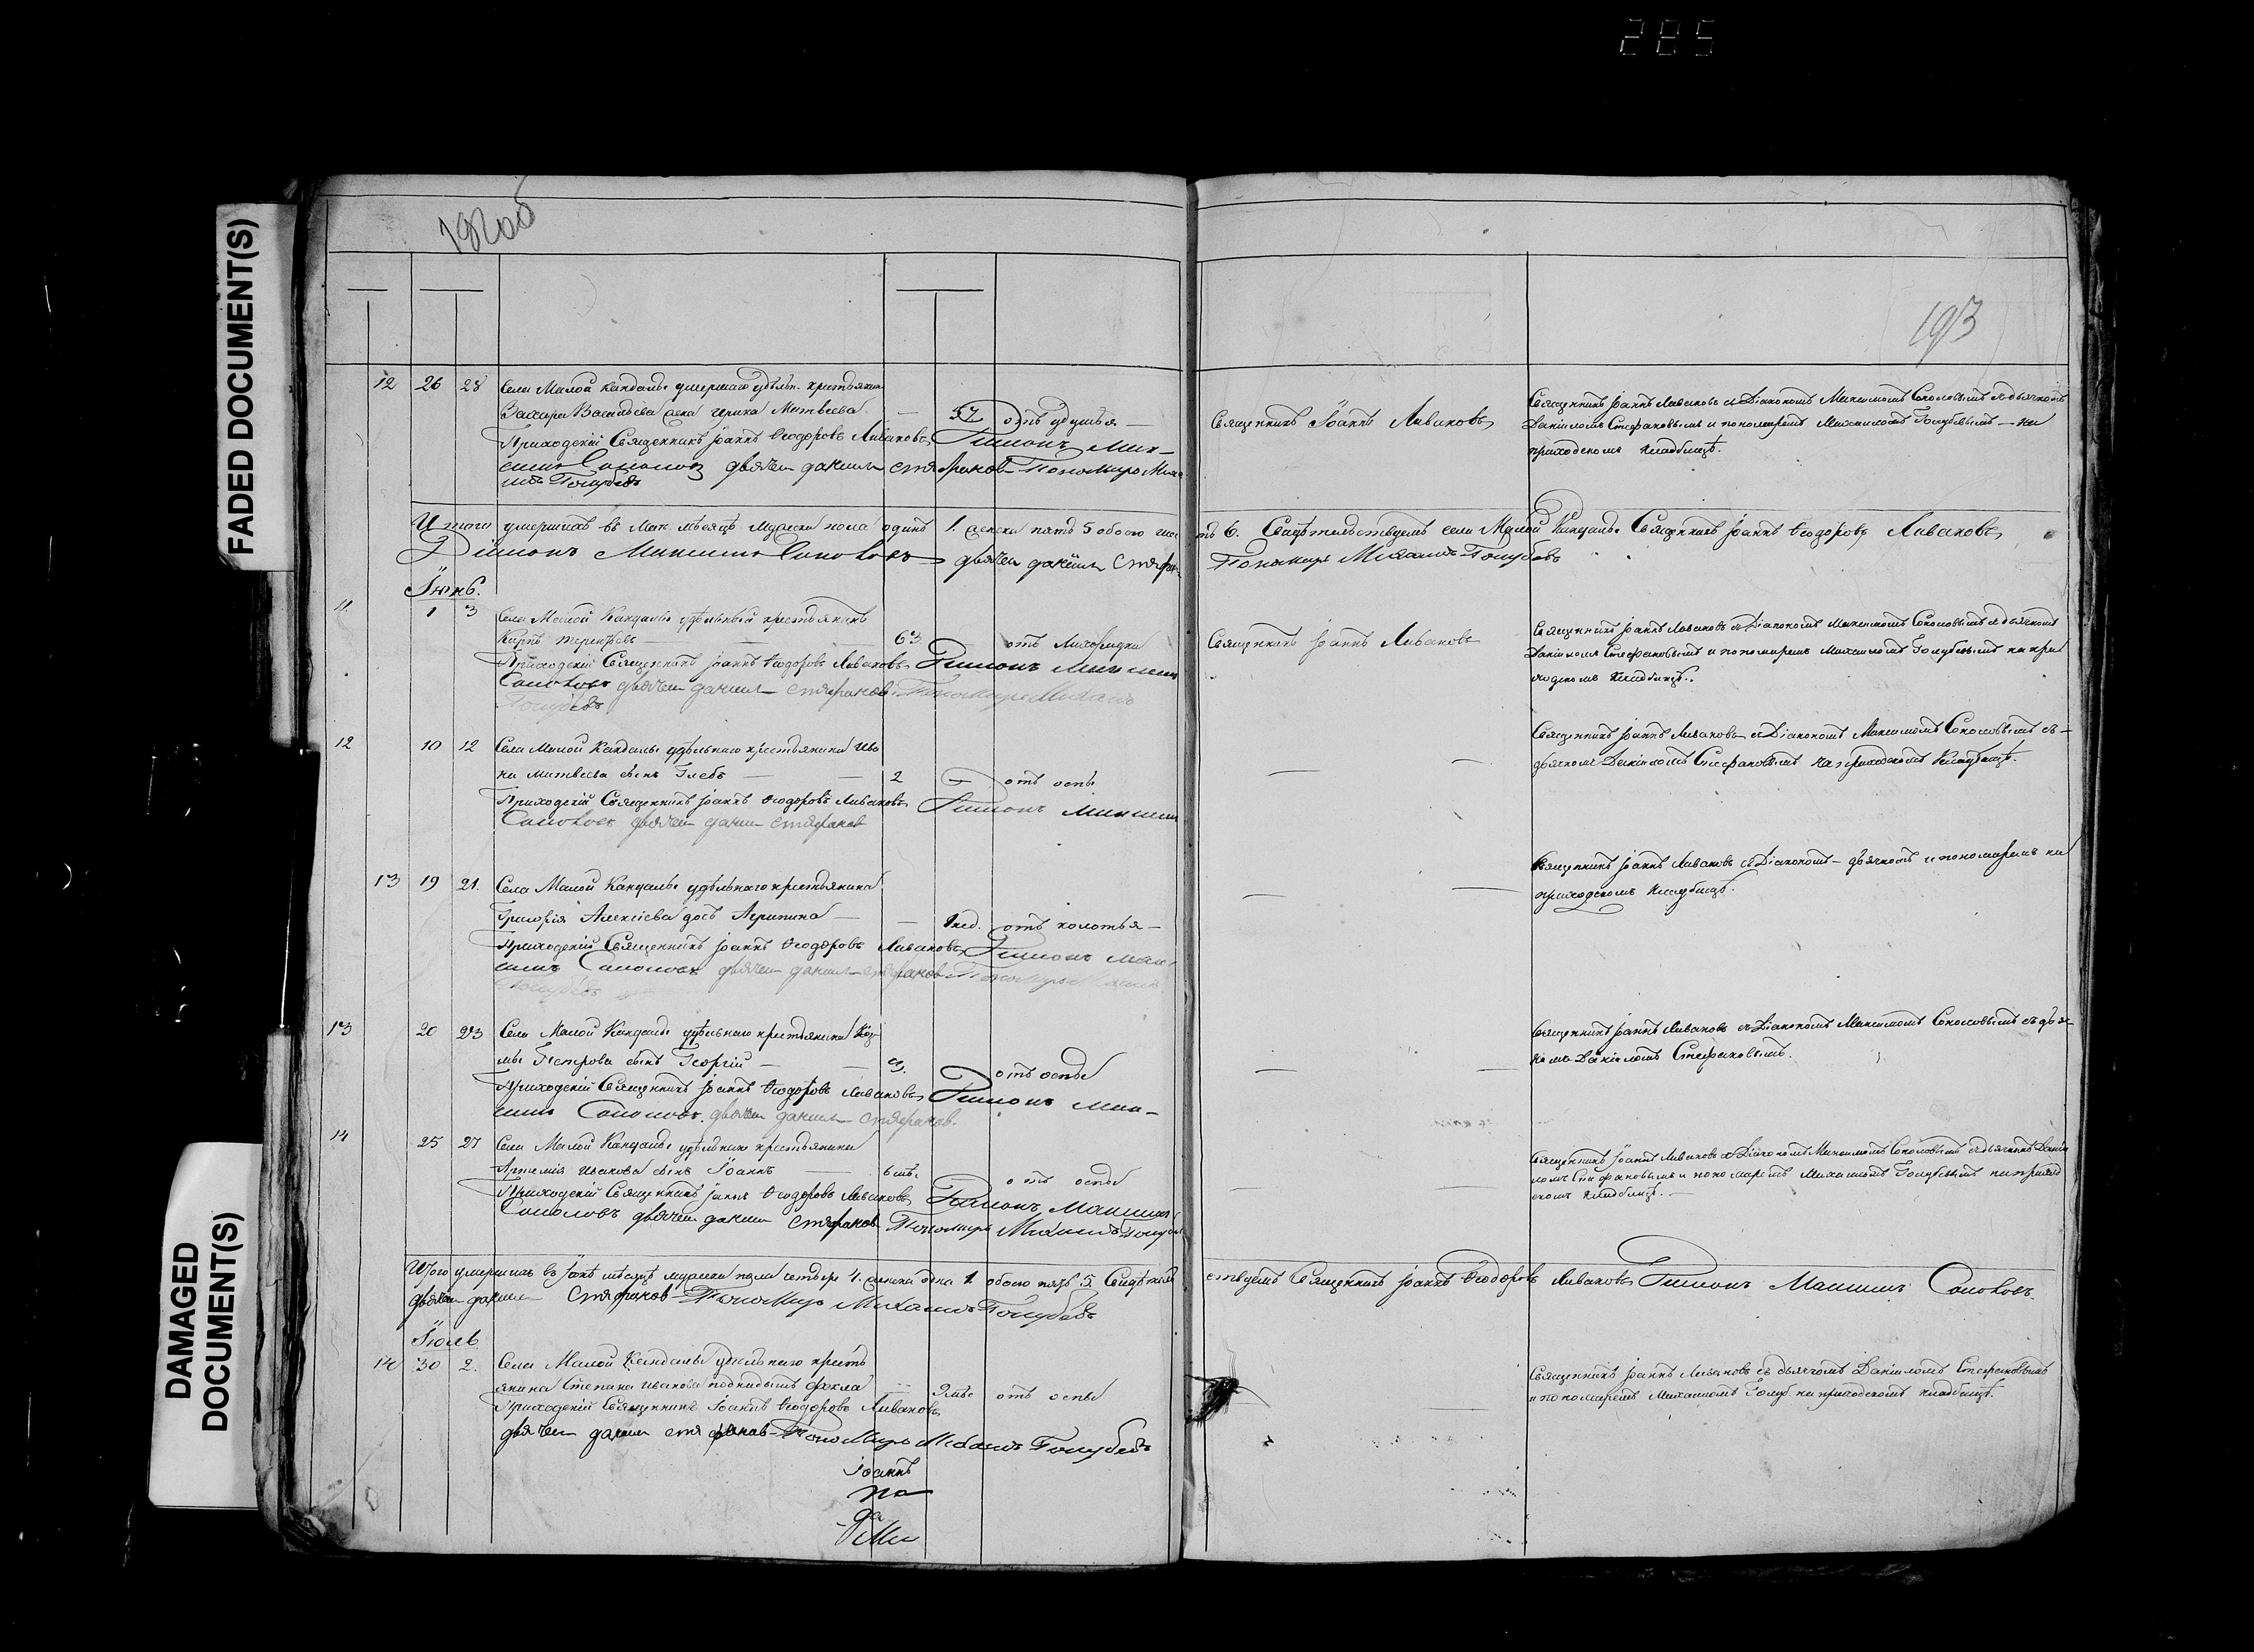 285
FADED DOCUMENT(S)
DAMAGED
DOCUMENT(S)
192об
193
12 26 28 Села Малой Кандалы умершаго удѣльн. крестьянина
Захара Васильева жена Ирина Матвеева — 57 отъ удушья —
Приходскій Священникъ Іоаннъ Ѳеодоровъ Ливановъ Діаконъ Мак-
симъ Соколовъ дьячекъ данилъ стефановъ Пономарь Миха
илъ Голубевъ
Священникъ Іоаннъ Ливановъ
Священникъ Іоаннъ Ливановъ съ Діакономъ Максимомъ Соколовымъ съ дьячкомъ
Даніиломъ Стефановымъ и пономаремъ Михаиломъ Голубевымъ — на
приходскомъ кладбищѣ.
Итого умершихъ въ Маѣ мѣсяцѣ мужеска пола одинъ 1. женска пять 5 обоего шес
ть 6. Свидѣтельствуемъ села Малой Кандалы Священникъ Іоаннъ Ѳеодоровъ Ливановъ
Діаконъ Максимъ Соколовъ дьячекъ данилъ Стефа-
Пономарь Михаилъ Голубевъ
Іюнь.
11. 1 3 Села Малой Кандалы удѣльный крестьянинъ
Карпъ Терентьевъ — 63 отъ лихорадки
Приходскій Священникъ Іоаннъ Ѳеодоровъ Ливановъ Діаконъ Максимъ
Соколовъ дьячекъ данилъ стефановъ Пономарь Михаилъ
Голубевъ
Священникъ Іоаннъ Ливановъ
Священникъ Іоаннъ Ливановъ съ Діакономъ Максимомъ Соколовымъ съ дьячкомъ
Даніиломъ Стефановымъ и пономаремъ Михаиломъ Голубевымъ на при
ходскомъ кладбищѣ.
12 10 12 Села Малой Кандалы удѣльнаго крестьянина Ива
на Матвеева сынъ Глебъ — 2 — отъ оспы
Приходскій Священникъ Іоаннъ Ѳеодоровъ Ливановъ Діаконъ Максимъ
Соколовъ дьячекъ данилъ стефановъ
Священникъ Іоаннъ Ливановъ съ Діакономъ Максимомъ Соколовымъ съ-
дьячкомъ Даніиломъ Стефановымъ на приходскомъ Кладбищѣ.
13 19 21. Села Малой Кандалы удѣльнаго крестьянина
Григорія Алексіева дочь Агрипина — нед. отъ колотья —
Приходскій Священникъ Іоаннъ Ѳеодоровъ Ливановъ Діаконъ Мак-
симъ Соколовъ дьячекъ данилъ стефановъ Пономарь Михаилъ
Голубевъ
Священникъ Іоаннъ Ливановъ съ Діакономъ — дьячкомъ и пономаремъ на
приходскомъ кладбищѣ.
13 20 23 Села Малой Кандалы удѣльнаго крестьянина Коз
мы Петрова сынъ Георгій — 3. отъ оспы
Приходскій Священникъ Іоаннъ Ѳеодоровъ Ливановъ Діаконъ Мак-
симъ Соколовъ. дьячекъ данилъ стефановъ.
Священникъ Іоаннъ Ливановъ съ Діакономъ Максимомъ Соколовымъ съ дьяч
комъ Даніиломъ Стефановымъ.
14 25 27 Села Малой Кандалы удѣльнаго крестьянина
Артемія Иванова сынъ Іоаннъ — 6 мѣс. отъ оспы
Приходскій Священникъ Іоаннъ Ѳеодоровъ Ливановъ Діаконъ Максимъ
Соколовъ дьячекъ данилъ стефановъ Пономарь Михаилъ Голубевъ
Священникъ Іоаннъ Ливановъ съ Діакономъ Максимомъ Соколовымъ съ дьячкомъ Дані
ломъ Стефановымъ и пономаремъ Михаиломъ Голубевымъ на приход
скомъ кладбищѣ. —
Итого умершихъ въ Іюнѣ мѣсяцѣ мужеска пола четыре 4. женска одна 1. обоего пять 5. Свидѣтель
ствуемъ Священникъ Іоаннъ Ѳеодоровъ Ливановъ Діаконъ Максимъ Соколовъ.
дьячекъ данилъ стефановъ Пономарь Михаилъ Голубевъ
Іюль
14 30 2. Села Малой Кандалы удѣльнаго кресть
янина Степана Иванова подкидышъ Ѳекла — мѣс отъ оспы
Приходскій Священникъ Іоаннъ Ѳеодоровъ Ливановъ
дьячекъ данилъ стефановъ Пономарь Михаилъ Голубевъ
Священникъ Іоаннъ Ливановъ съ дьячкомъ Даніиломъ Стефановымъ
и пономаремъ Михаиломъ Голуб на приходскомъ кладбищѣ.
Іоаннъ